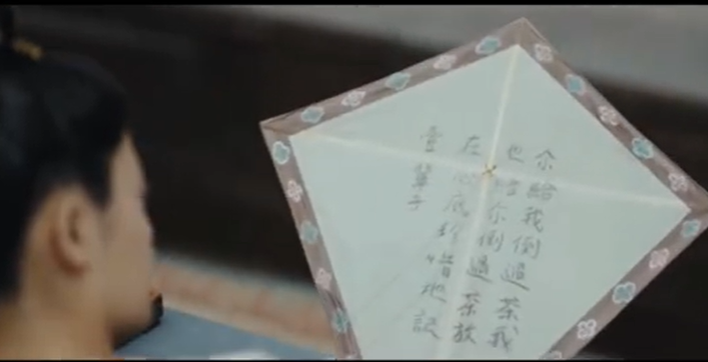 尔給我倒過茶我
也給尔倒過茶放
在心底珍惜地記
壹輩子